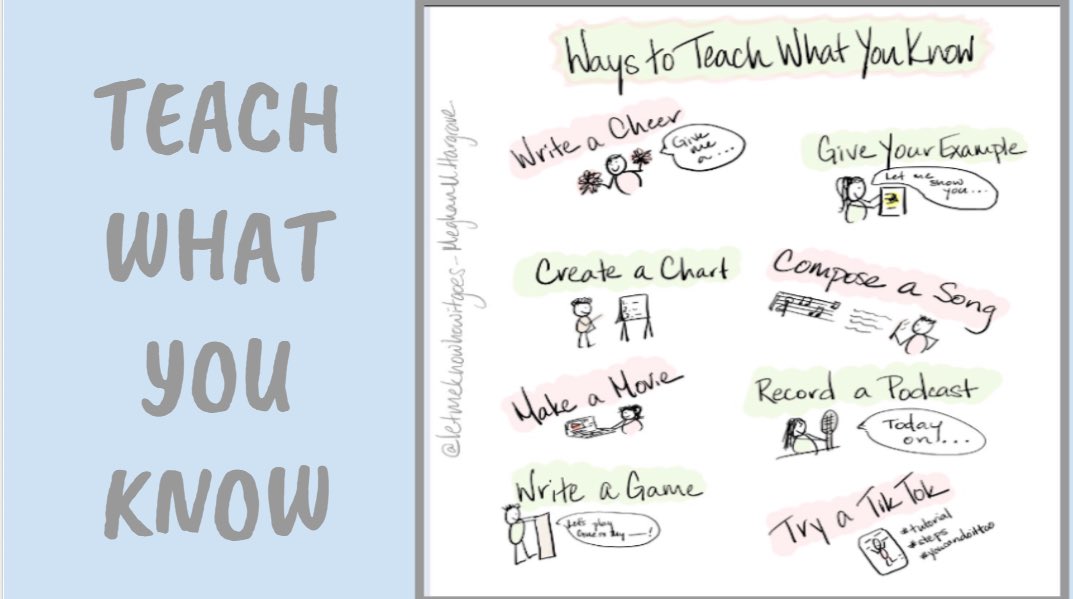 TEACH
WHAT
YOU
KNOW
Ways to Teach What You Know
@letmeknowhowitgoes - Meghan U. Hargrave
Write a Cheer
Give
me
a...
Give Your Example
Let me
show
you...
Create a Chart
Compose a Song
Make a Movie
Record a Podcast
Today
on...
Write a Game
Let's play
Try a TikTok
#tutorial
#steps
#youcandoittoo